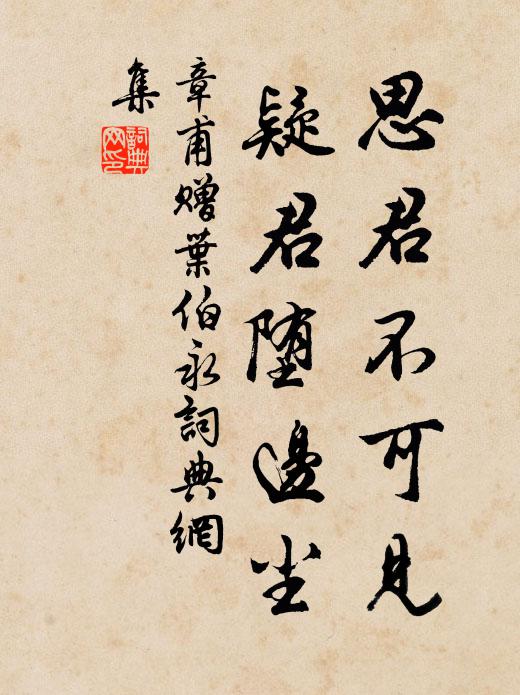 思君不可見
疑君墮邊尘
章甫贈葉伯永詞典網
集
詞典
网印